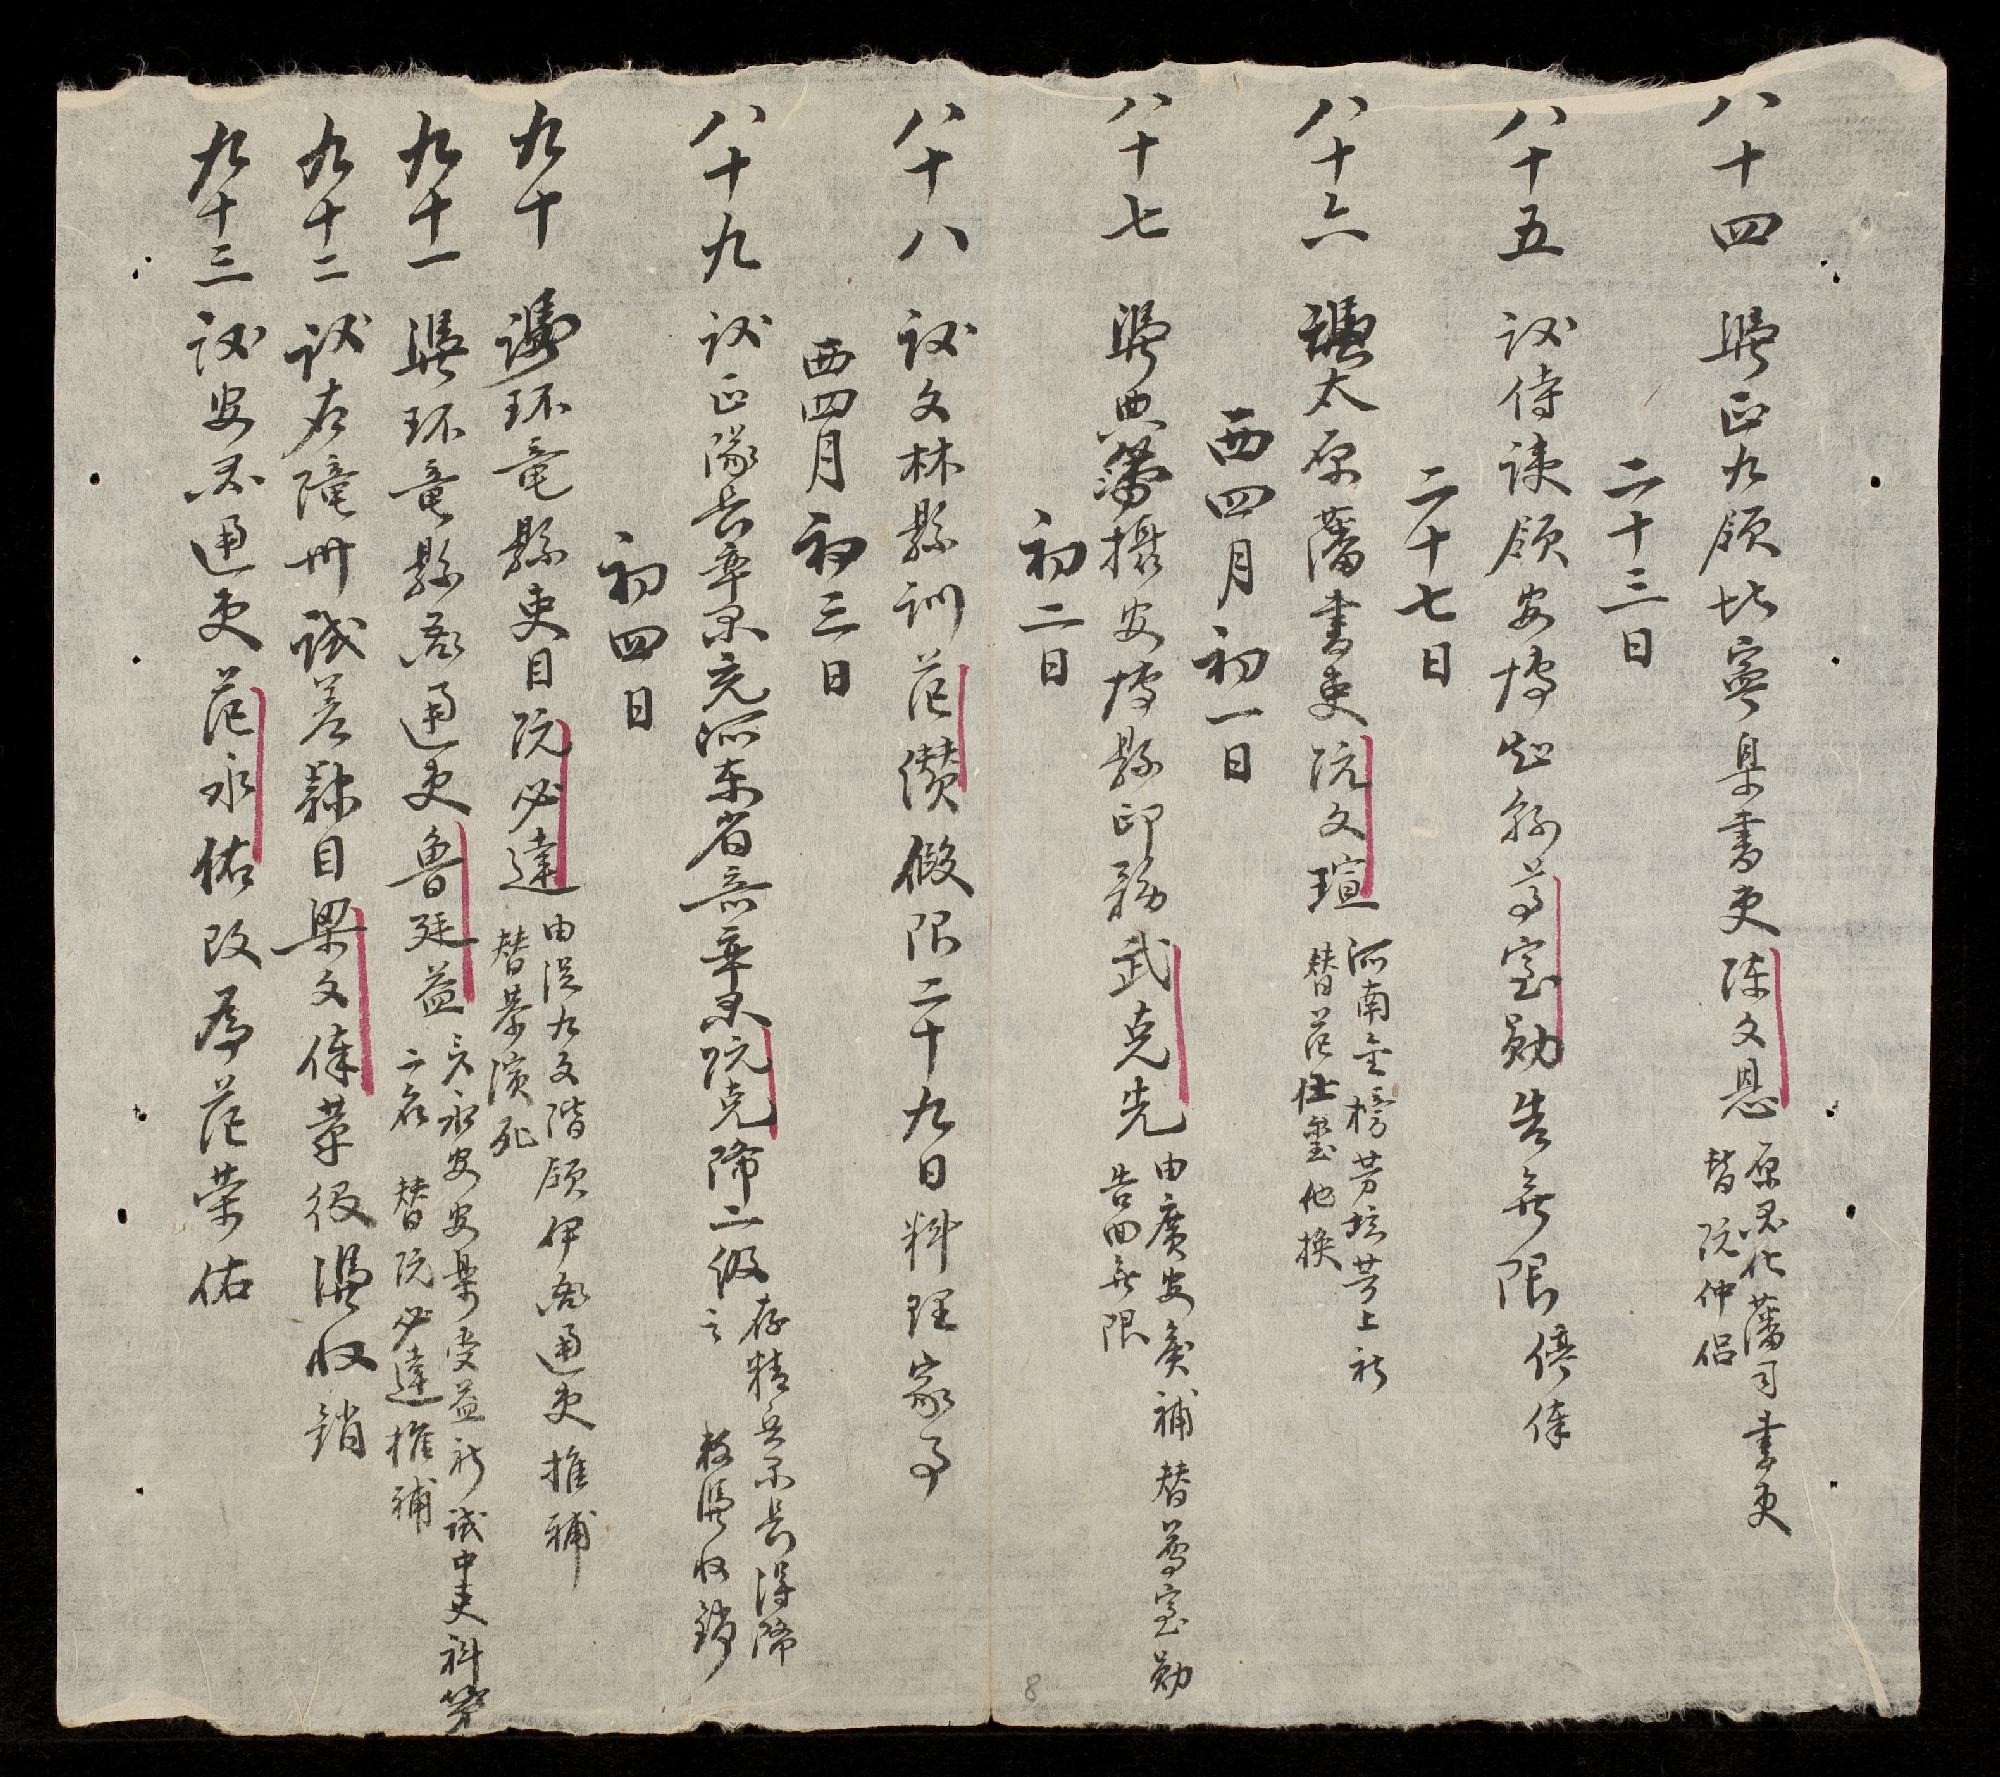 八十四 憑正九領北寧臬書吏陳文恩 原思化藩司書吏
替阮仲侶
二十三日
八十五 議侍讀領安博知縣尊室勛告無限俸
二十七日
八十六 憑太原藩書吏阮文瑄 河南金榜芳坛芳上社
替范仕璽他換
西四月初一日
八十七 憑典簿攝安博縣印務武克先 由廣安奐補 替尊室勛
告回無限
初二日
八十八 議文林縣訓范儹假限二十九日料理家事
西四月初三日
八十九 議正隊長率隊充河東省言率隊阮克降二級 存精兵隊長得降
之 救憑收銷
初四日
九十 憑环竜縣吏目阮必達 由從九文階領伊県通吏推補
替黎演死
九十一 憑环竜縣県通吏魯廷益 貫永安安樂受益社試中吏科第
二名 替阮必達推補
九十二 議右隴州試差隸目梁文俸革役憑收銷
九十三 議安思通吏范永佑改為范荣佑
8